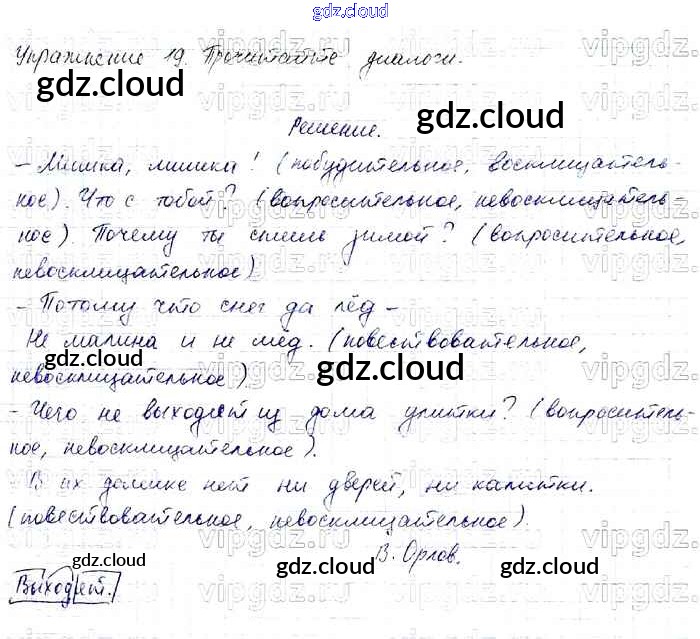 gdz.cloud
Упражнение 19. Прочитайте диалоги.
Решение.
– Мишка, мишка! (побудительное, восклицатель-
ное). Что с тобой? (вопросительное, невосклицатель-
ное). Почему ты спишь зимой? (вопросительное,
невосклицательное)
– Потому что снег да лёд –
Не малина и не мёд. (повествовательное,
невосклицательное)
– Чего не выходет из дома улитки? (вопроситель-
ное, невосклицательное).
В их домике нет ни дверей, ни калитки.
(повествовательное, невосклицательное).
В. Орлов.
Выходет.
gdz.cloud
gdz.cloud
gdz.cloud
gdz.cloud
gdz.cloud
gdz.cloud
vipgdz.ru